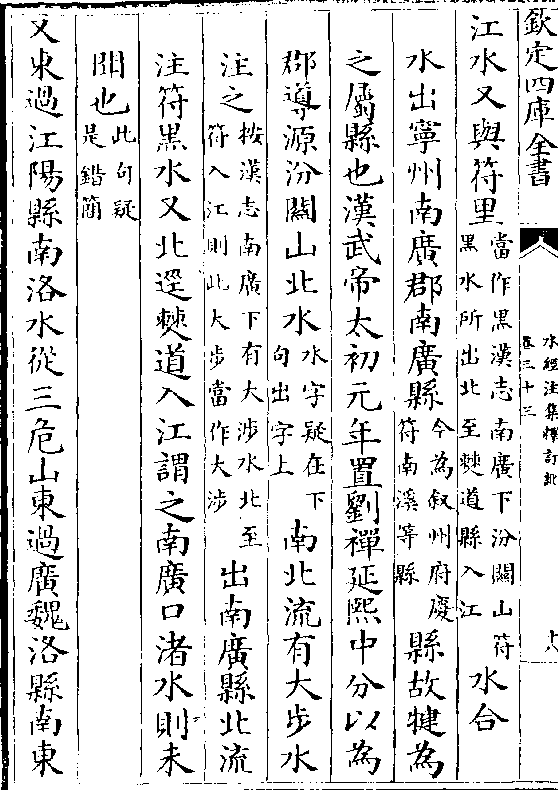 欽定四庫全書
水經注集釋訂訛
卷三十三
十八
江水又與符里
當作黑漢志南廣下汾關山符
黑水所出北至僰道縣入江
水合
水出寧州南廣郡南廣縣
今為叙州府慶
符南溪等縣
縣故犍為
之屬縣也漢武帝太初元年置劉禪延熙中分以為
郡導源汾關山北水
水字疑在下
句出字上
南北流有大步水
注之
按漢志南廣下有大涉水北至
符入江則此大步當作大涉
出南廣縣北流
注符黑水又北逕僰道入江謂之南廣口渚水則未
聞也
此句疑
是錯簡
又東過江陽縣南洛水從三危山東過廣魏洛縣南東